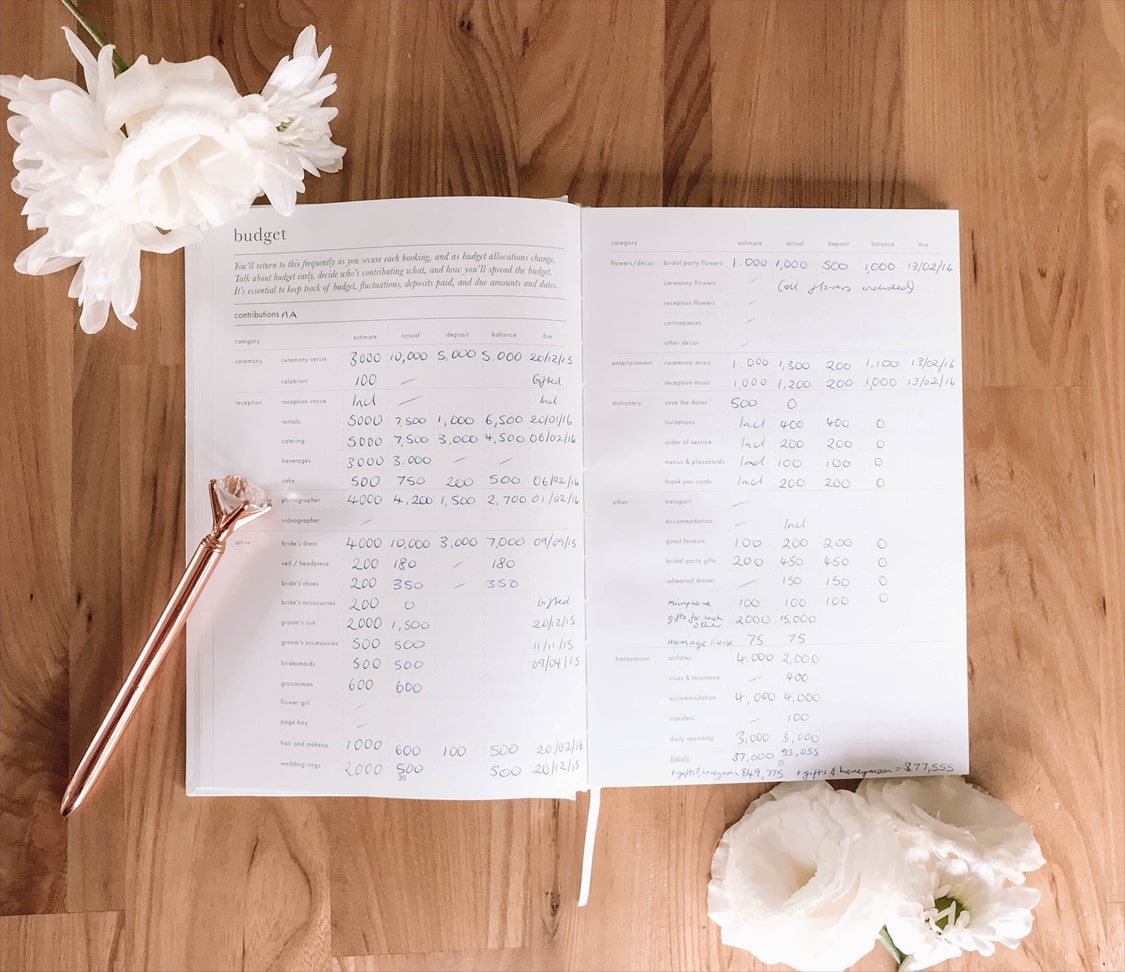 budget
You'll return to this frequently as you secure each booking, and as budget allocations change.
Talk about budget early, decide who's contributing what, and how you'll spread the budget.
It's essential to keep track of budget, fluctuations, deposits paid, and due amounts and dates.
contributions NA
category estimate actual deposit balance due
ceremony ceremony venue 3000 10,000 5,000 5,000 20/12/15
celebrant 100 — Gifted
reception reception venue Incl — Incl
rentals 5000 7,500 1,000 6,500 20/01/16
catering 5000 7,500 3,000 4,500 06/02/16
beverages 3000 3,000 — —
cake 500 750 200 500 06/02/16
photographer 4000 4,200 1,500 2,700 01/02/16
videographer —
attire bride's dress 4000 10,000 3,000 7,000 09/09/15
veil / headpiece 200 180 — 180
bride's shoes 200 350 — 350
bride's accessories 200 0 Gifted
groom's suit 2000 1,500 20/12/15
groom's accessories 500 500 11/11/15
bridesmaids 500 500 09/04/15
groomsmen 600 600
flower girl —
page boy —
hair and makeup 1000 600 100 500 20/02/16
wedding rings 2000 500 500 20/12/15
20
category estimate actual deposit balance due
flowers/décor bridal party flowers 1.000 1,000 500 1,000 13/02/16
ceremony flowers — (all flowers included)
reception flowers —
centrepieces —
other décor —
entertainment ceremony music 1.000 1,300 200 1,100 13/02/16
reception music 1,000 1,200 200 1,000 13/02/16
stationery save the dates 500 0
invitations Incl 400 400 0
order of service Incl 200 200 0
menus & placecards Incl 100 100 0
thank you cards Incl 200 200 0
other transport —
accommodation — Incl
guest favours 100 200 200 0
bridal party gifts 200 450 450 0
rehearsal dinner — 150 150 0
100 100 100 0
gifts for each other 2000 15,000
75 75
honeymoon airfares 4,000 2,000
visas & insurance — 400
accommodation 4,000 4,000
transfers — 100
daily spending 3,000 3,000
totals 37,000 53,055
21
+ gifts & honeymoon $49,775 + gifts & honeymoon = $77,555